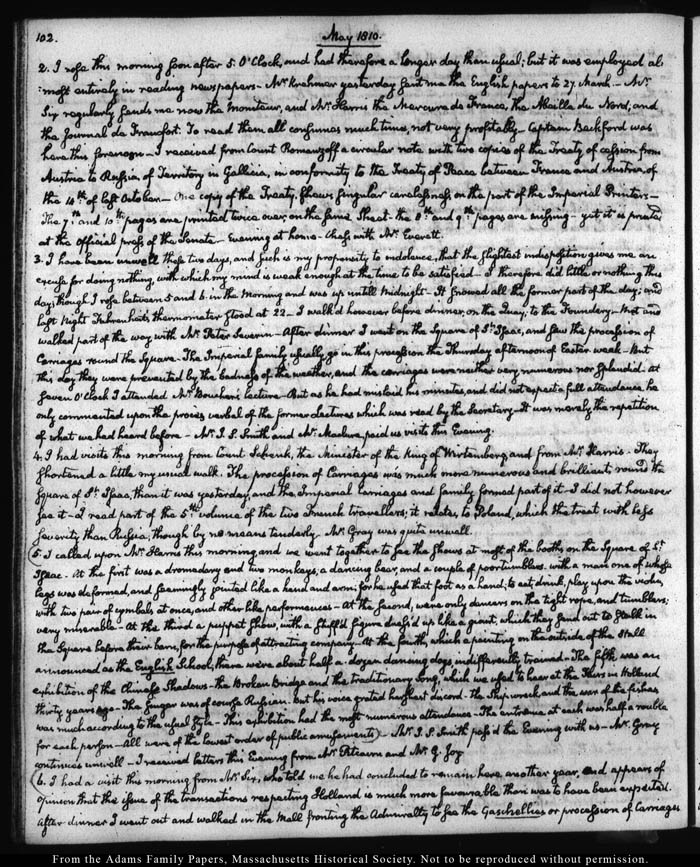 102.
May 1810.
2. I rose this morning soon after 5. O'Clock, and had therefore a longer day than usual; but it was employed al-
:most entirely in reading newspapers — Mr. Krehmer yesterday sent me the English papers to 27. March — Mr.
Six regularly sends me now the Moniteur, and Mr. Harris the Mercure de France, the Abeille du Nord, and
the Journal de Francfort. To read them all consumes much time, not very profitably — Captain Beckford was
here this forenoon — I received from Count Romanzoff a circular note with two copies of the Treaty of cession from
Austria to Russia of Territory in Gallicia, in conformity to the Treaty of Peace between France and Austria, of
the 14th. of last October — One copy of the Treaty, shews singular carelessness on the part of the Imperial Printers —
The 7th. and 10th. pages are printed twice over, on the same sheet — the 8th. and 9th. pages are missing — yet it is printed
at the official press of the Senate — Evening at home — Chess with Mr. Everett.
3. I have been unwell these two days, and such is my propensity to indolence, that the slightest indisposition gives me an
excuse for doing nothing, with which my mind is weak enough at the time to be satisfied — I therefore did little or nothing this
day; though I rose between 5 and 6. in the Morning and was up untill Midnight — It snowed all the former part of the day; and
last Night Fahrenheit's thermometer stood at 22 — I walk'd however before dinner, on the Quay, to the Foundery — Met and
walked part of the way with Mr. Peter Severin — After dinner I went on the Square of St. Isaac, and saw the procession of
Carriages round the Square — The Imperial family usually go in this procession the Thursday afternoon of Easter week — But
this day they were prevented by the badness of the weather, and the carriages were neither very numerous nor splendid. At
seven O'Clock I attended Mr. lecture — But as he had mislaid his minutes, and did not expect a full attendance he
only commented upon the procès verbal of the former lectures which was read by the Secretary — It was merely the repetition
of what we had heard before — Mr. J. S. Smith and Mr. Maclure, paid us visits this Evening.
4. I had visits this morning from Count Schenk, the Minister of the King of Wirtemberg, and from Mr. Harris — They
shortened a little my usual walk. The procession of Carriages was much more numerous and brilliant round the
Square of St. Isaac, than it was yesterday, and the Imperial Carriages and family formed part of it — I did not however
see it — I read part of the 5th. volume of the two French travellers; it relates, to Poland, which the treat with less
severity than Russia, though by no means tenderly. Mr. Gray was quite unwell.
5. I called upon Mr. Harris this morning, and we went together to see the shows at most of the booths on the Square of St.
Isaac. At the first was a dromedary and two monkeys, a dancing bear, and a couple of poor tumblers. with a man one of whose
legs was deformed, and seemingly jointed like a hand and arm; for he used that foot as a hand; to eat, drink, play upon the violin,
with two pair of cymbals, at once, and other like performances — At the second, were only dancers on the tight rope, and tumblers;
very miserable — At the third a puppet show, with a stuff'd figure dress'd up like a giant, which they send out to stalk in
the Square before their barn, for the purpose of attracting company — At the fourth, which a painting on the outside of the stall
announced as the English School, there were about half a dozen dancing dogs indifferently trained — The fifth was an
exhibition of the Chinese Shadows — the Broken Bridge and the traditionary song, which we used to hear at the Fairs in Holland
thirty years ago — The singer was of course Russian — but his voice grated harshest discord — the Shipwreck and the war of the fishes
was much according to the usual style — This exhibition had the most numerous attendance — The entrance at each was half a rouble
for each person — all were of the lowest order of public amusements) — Mr. J. S. Smith pass'd the Evening with us — Mr. Gray
continues unwell — I received letters this Evening from Mr. Pitcairn and Mr. G. Joy
6. I had a visit this morning from Mr. Six, who told me he had concluded to remain here another year, and appears of
opinion that the issue of the transactions respecting Holland is much more favourable than was to have been expected.
After dinner I went out and walked in the Mall fronting the Admiralty to see the or procession of Carriages
From the Adams Family Papers, Massachusetts Historical Society. Not to be reproduced without permission.